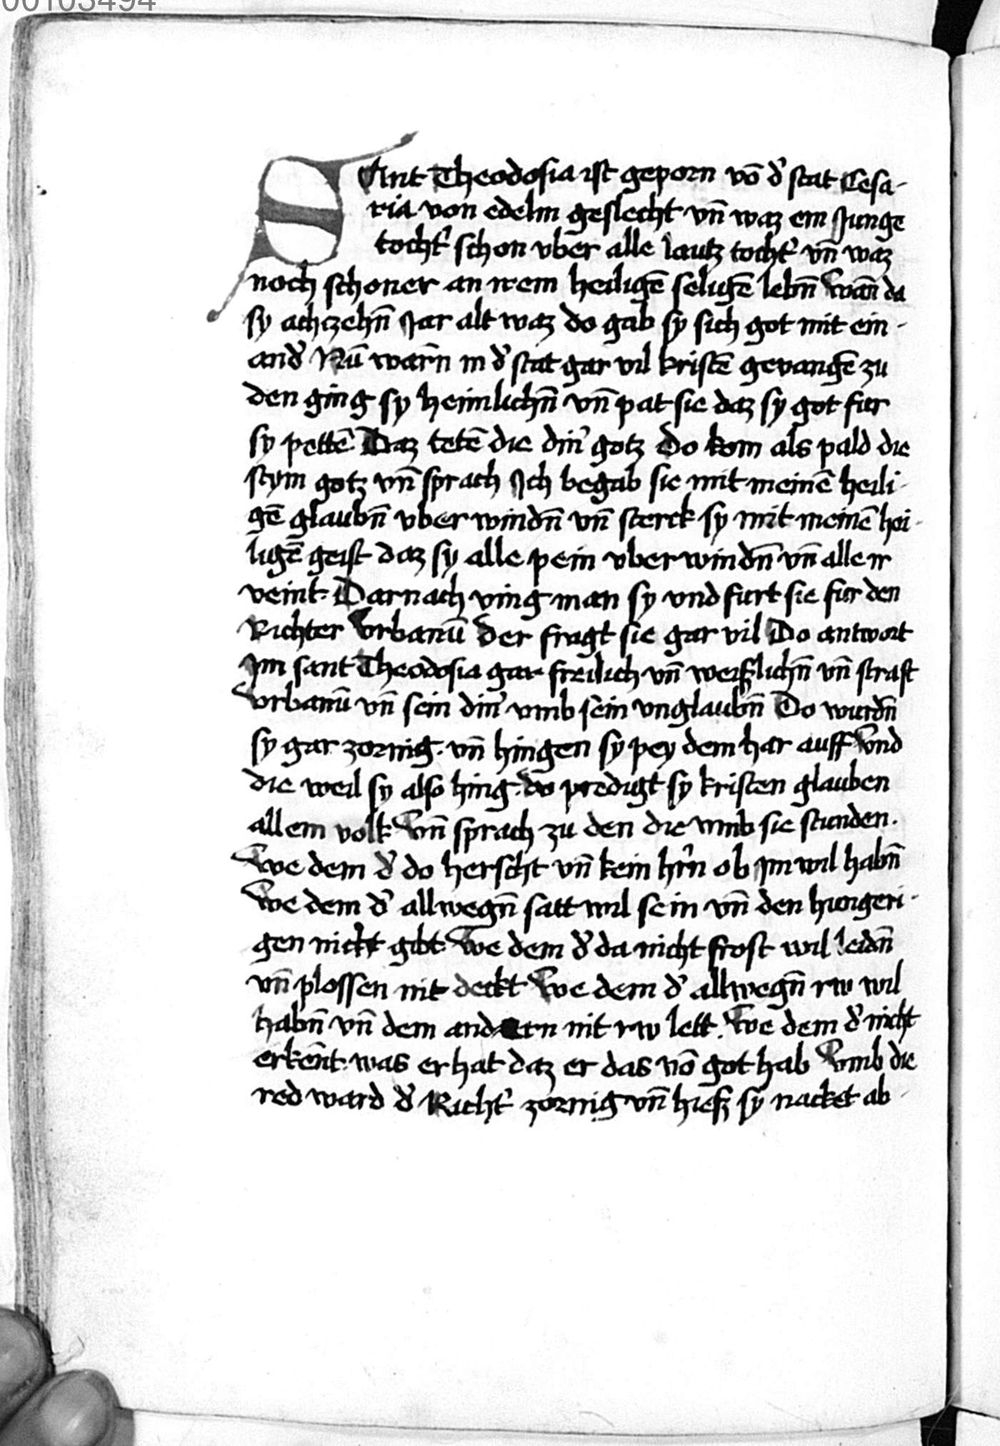 00103494
SAnt Theodosia ist geporn vō d' stat Cesa-
ria von edelm geslecht vn̄ waz ein Junge
tocht' schon vber alle lautz tocht' vn̄ waz
noch schoner an irem heiligē seligē lebn̄ wān da
sy achzehn̄ Jar alt waz do gab sy sich got mit ein-
and' Nū warn̄ in d' stat gar vil kristē gevangē zu
den ging sy heimlichn̄ vn̄ pat sie daz sy got fur
sy pettē Daz tetē die din' gotz Do kom als pald die
stym gotz vn̄ sprach Jch begab sie mit meinē heili-
gē glaubn̄ vberwindn̄ vn̄ sterck sy mit meinē hei-
ligē geist daz sy alle pein vberwindn̄ vn̄ alle ir
veint. Darnach ving man sy vnd furt sie fur den
Richter Vrbanū der fragt sie gar vil Do antwort
Jm sant Theodosia gar freilich vn̄ weißlichn̄ vn̄ straft
Vrbanū vn̄ sein din' vmb sein vnglaubn̄ Do wurdn̄
sy gar zornig. vn̄ hingen sy pey dem har auff Vnd
die weil sy also hing. do predigt sy kristen glauben
allem volk Vn̄ sprach zu den die vmb sie stunden.
We dem d' do herscht vn̄ kein hr̄n ob Jm wil habn̄
We dem d' allwegn̄ satt wil sein vn̄ den hungeri-
gen nicht gibt We dem d' da nicht frost wil leidn̄
vn̄ plossen nit deckt We dem d' allwegn̄ rw wil
habn̄ vn̄ dem andern nit rw lett. We dem d' nicht
erkēnt was er hat daz er das vō got hab Vmb die
red ward d' Richt' zornig vn̄ hieß sy nacket ab-